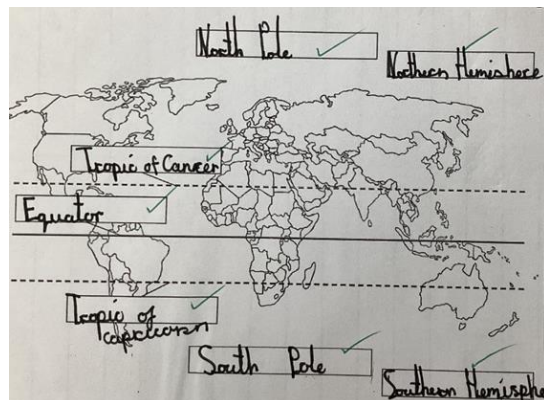 North Pole
Northern Hemishere
Tropic of Cancer
Equator
Tropic of
capricorn
South Pole
Southern Hemisphe